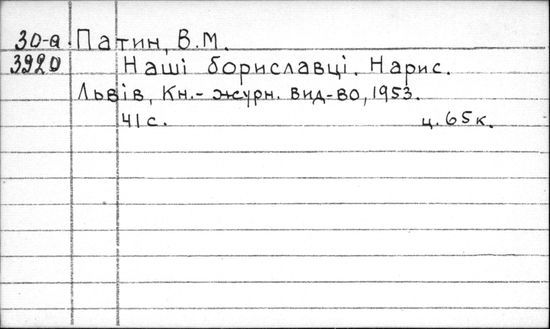 30-а Патин, В.М.
3920 Наші бориславці. Нарис.
Львів, Кн.-журн. вид-во, 1953.
41 с. ц. 65 к.